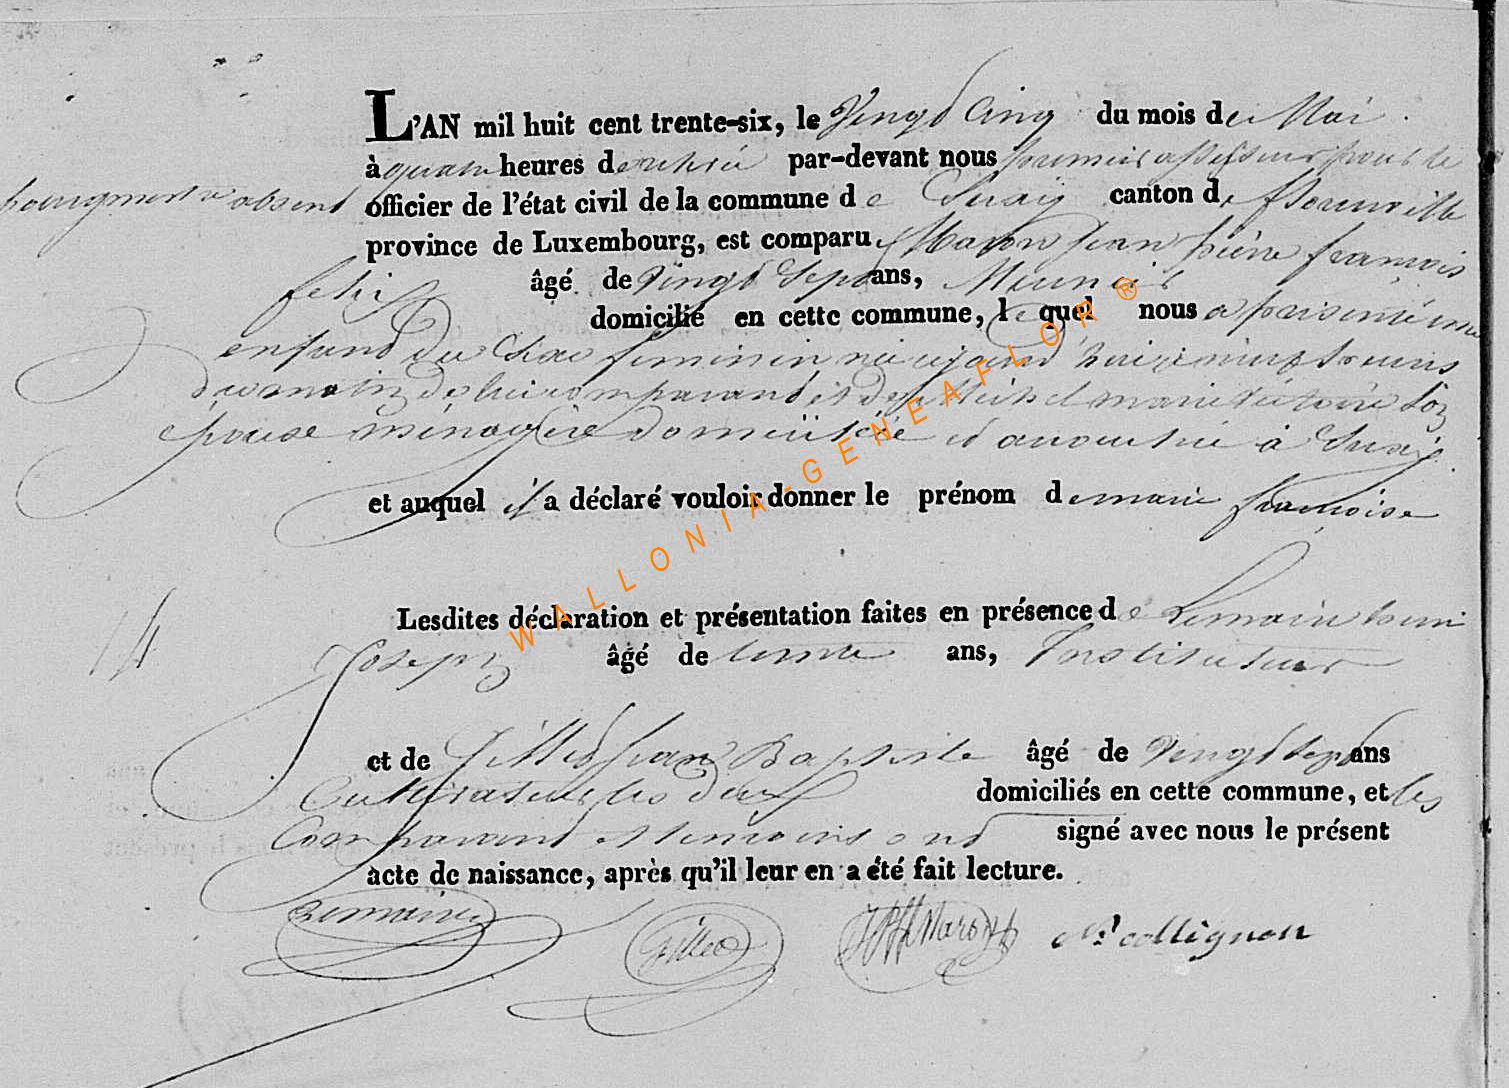 L'AN mil huit cent trente-six, le Vingt Cinq du mois de Mai
à quatre heures de relevé par-devant nous premier assesseur pour le
bourgmestre absent officier de l'état civil de la commune de Suxy canton de florenville
province de Luxembourg, est comparu Maron Jean pierre françois
felix âgé de Vingt Sept ans, Meunier
domicilié en cette commune, lequel nous a présenté un
enfant du Sexe feminin née aujourd'hui à neuf heures
du matin de lui comparant et de marie Victoire Son
epouse ménagère domiciliée et accouchée à Suxy
et auquel il a déclaré vouloir donner le prénom de marie françoise
Lesdites déclaration et présentation faites en présence de
14
Joseph âgé de trente ans, Instituteur
et de Gilles Jean Baptiste âgé de Vingt Sept ans
Cultivateur les deux domiciliés en cette commune, et les
Comparant et temoins ont signé avec nous le présent
acte de naissance, après qu'il leur en a été fait lecture.
Gilles JPFF Maron Collignon
WALLONIA-GENEAFLOR ®